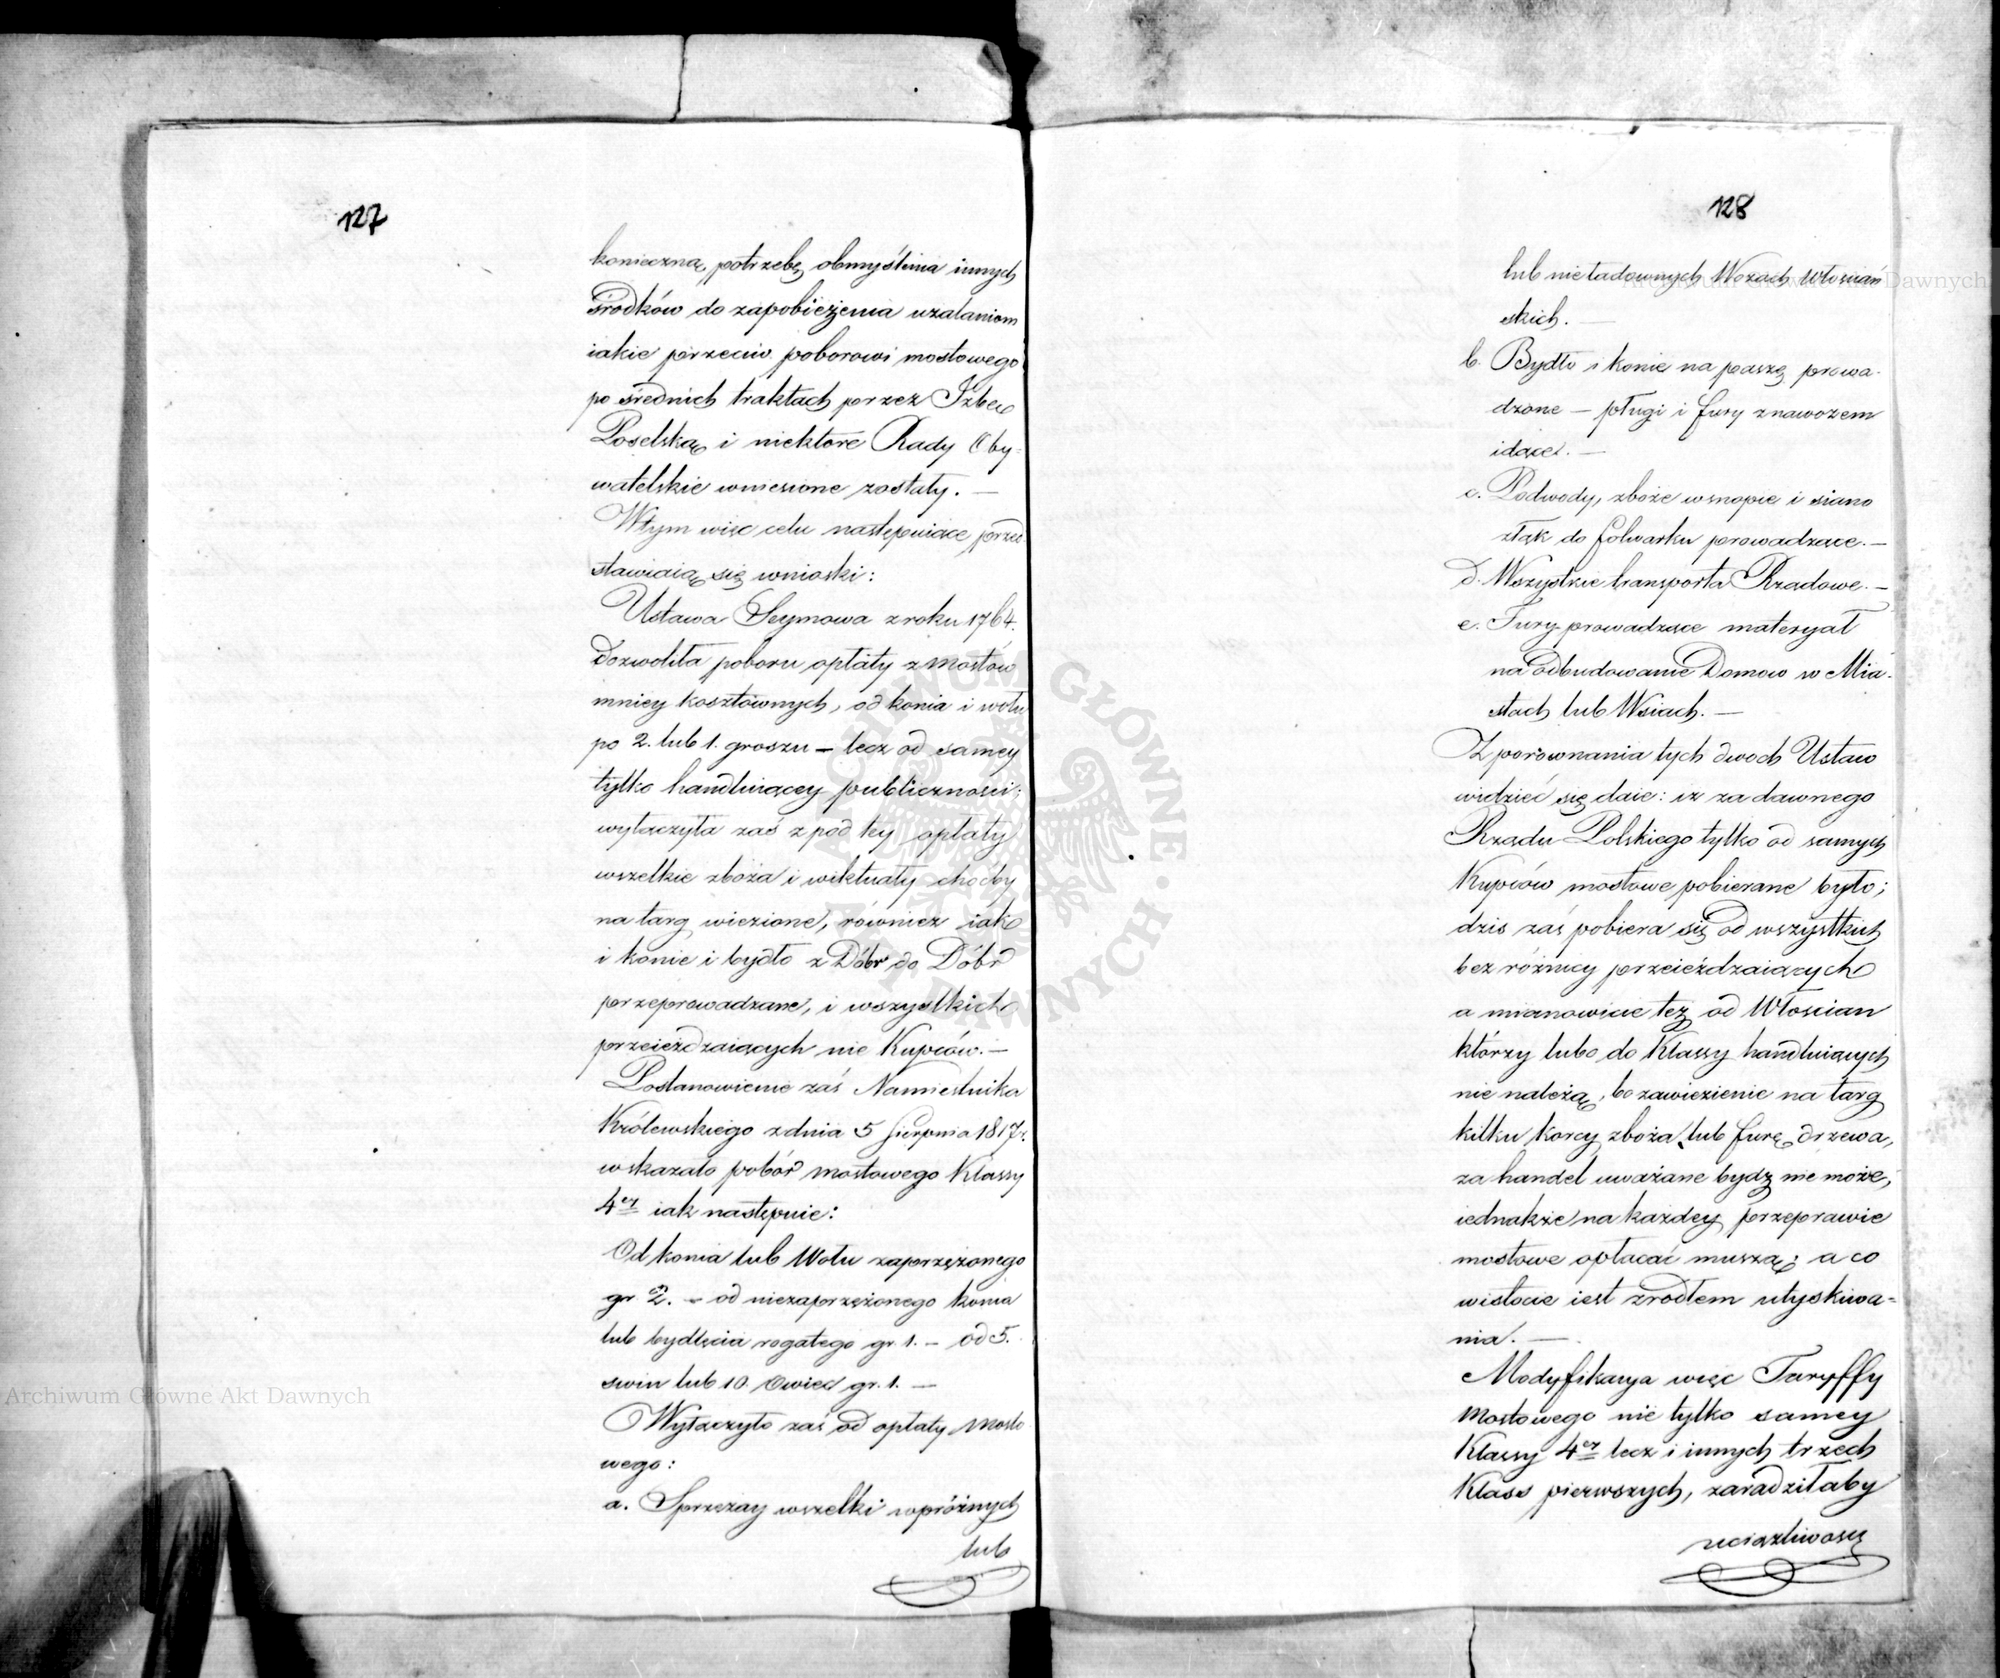 127
konieczną potrzebę obmyślenia innych
środków do zapobieżenia użalaniom
iakie przeciw poborowi mostowego
po średnich traktach przez Izbę
Poselską i niektóre Rady Oby-
watelskie wniesione zostały. —
W tym więc celu następuiące przed
stawiaią się wnioski:
Ustawa Seymowa z roku 1764.
dozwoliła poboru opłaty z mostów
mniey kosztownych, od konia i wołu
po 2. lub 1. groszu — lecz od samey
tylko handluiącey publiczności;
wyłączyła zaś z pod tey opłaty
wszelkie zboża i wiktuały choćby
na targ wiezione, również iak
i konie i bydło z Dóbr do Dóbr
przeprowadzane, i wszystkich
przeieżdzaiących nie Kupców. —
Postanowienie zaś Namiestnika
Królewskiego z dnia 5 Sierpnia 1817 r.
wskazało pobór mostowego Klassy
4ey iak następuie:
Od konia lub Wołu zaprzężonego
gr 2. — od niezaprzężonego konia
lub bydlęcia rogatego gr. 1. — od 5.
swin lub 10. Owiec gr. 1. —
Wyłączyło zaś od opłaty mosto
wego:
a. Sprzężay wszelki w próżnych
lub
128
lub nieładownych Wozach Włosciań
skich. —
b. Bydło i konie na paszę prowa-
dzone — pługi i fury z nawozem
idące. —
c. Podwody, zboże w snopie i siano
z łąk do folwarku prowadzące. —
d. Wszystkie transporta Rządowe. —
e. Fury prowadzące materyał
na odbudowanie Domow w Mia-
stach lub Wsiach. —
Z porównania tych dwoch Ustaw
widzieć się daie: iż za dawnego
Rządu Polskiego tylko od samych
Kupców mostowe pobierane było;
dzis zaś pobiera się od wszystkich
bez różnicy przeieżdzaiących
a mianowicie też od Włoscian
którzy lubo do Klassy handluiących
nie należą, bo zawiezienie na targ
kilku korcy zboża lub furę drzewa,
za handel uważane bydz nie może,
iednakże na każdey przeprawie
mostowe opłacać muszą; a co
w istocie iest zrodłem utyskiwa=
nia. —
Modyfikacya więc Taryffy
Mostowego nie tylko samey
Klassy 4ey lecz i innych trzech
Klass pierwszych, zaradziłaby
uciążliwosci
Archiwum Główne Akt Dawnych
Archiwum Główne Akt Dawnych
ARCHIWUM GŁÓWNE AKT DAWNYCH